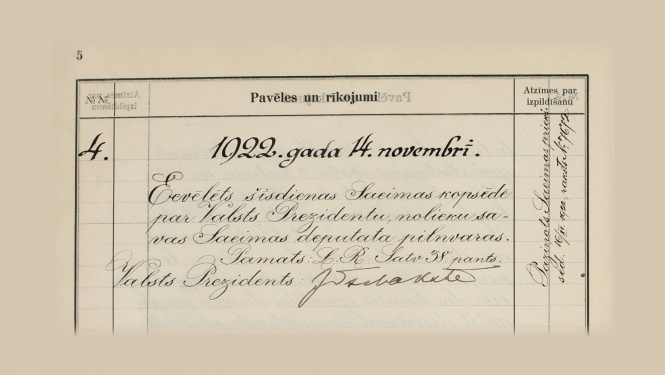 5
№№
Pavēles un rīkojumi
Atzīmes par
izpildīšanu
4.
1922. gada 14. novembrī.
Eevēlēts šīsdienas Saeimas kopsēdē
par Valsts Prezidentu, nolieku sa-
vas Saeimas deputata pilnvaras.
Pamats: L. R. Satv 38. pants.
Valsts Prezidents: J Tschakste
Paziņots Saeimas priekš-
sēd.